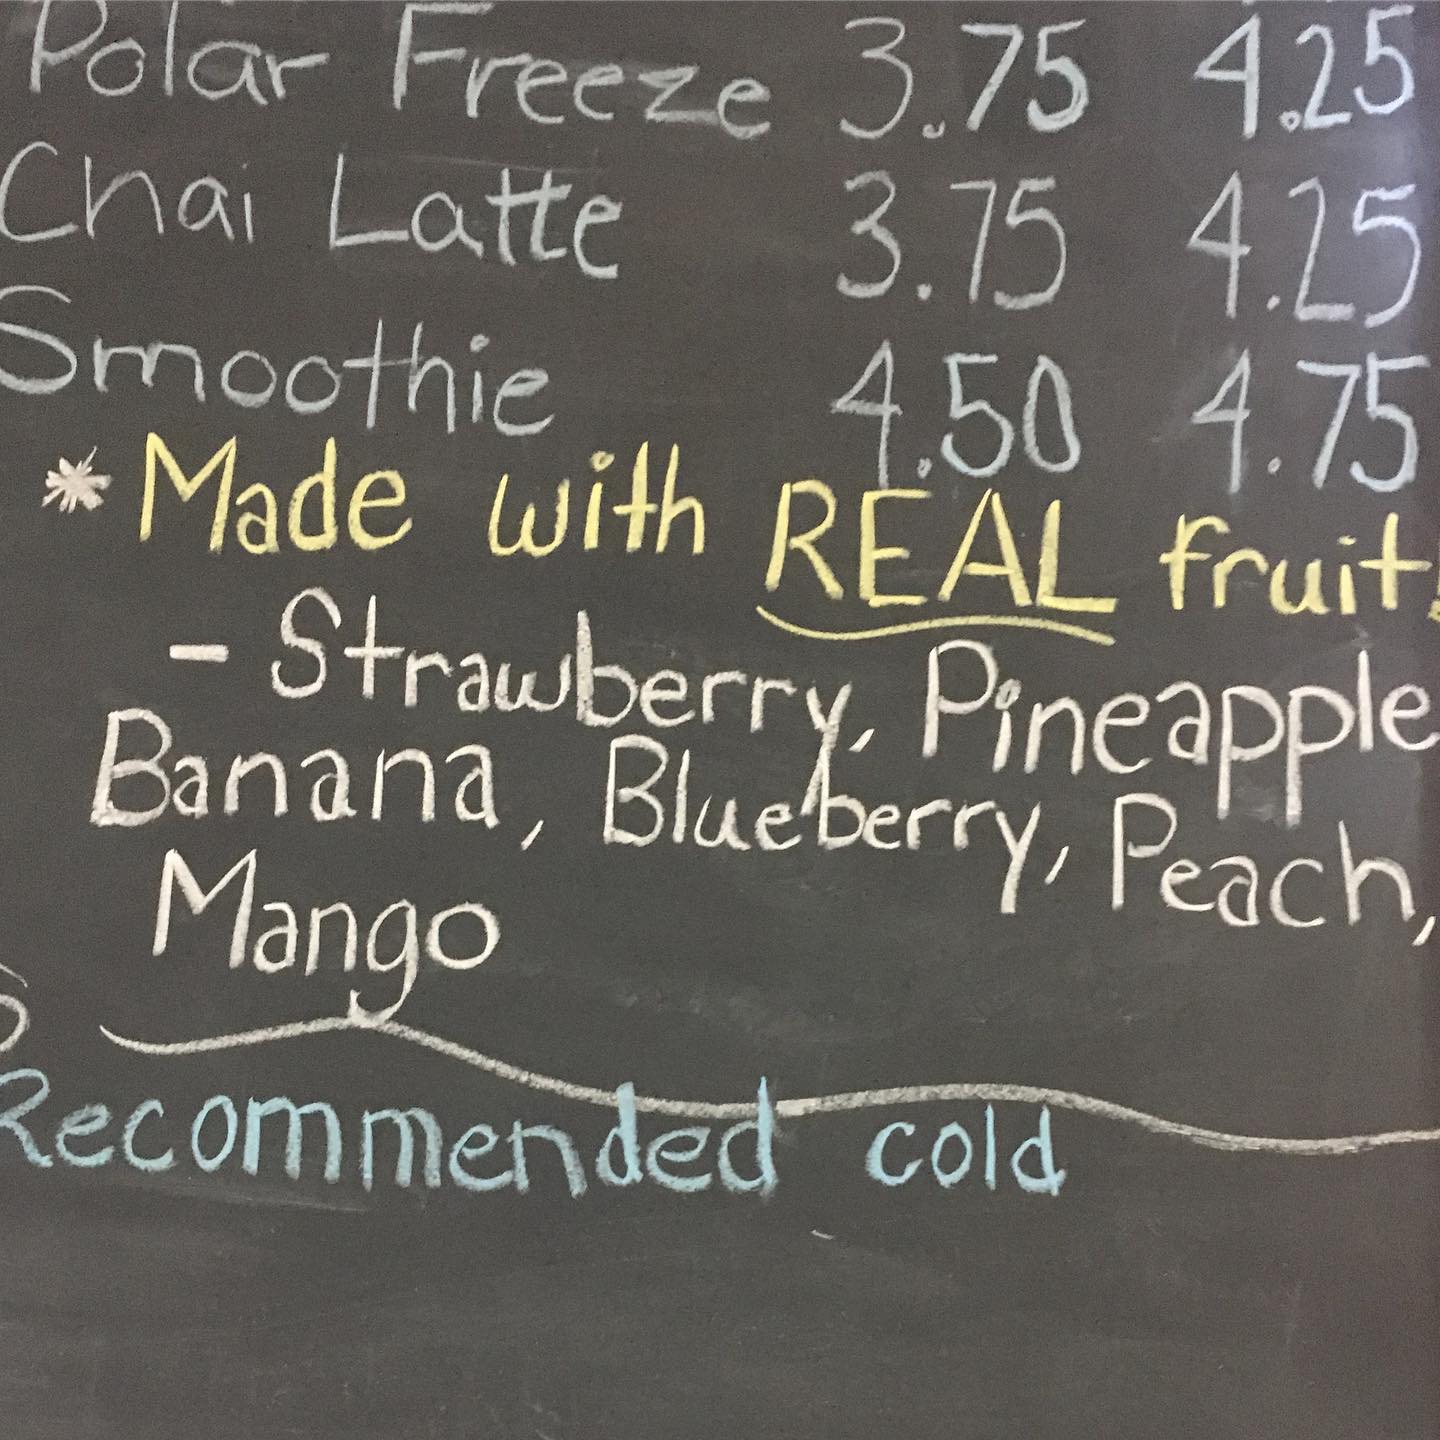 Polar Freeze 3.75 4.25
Chai Latte 3.75 4.25
Smoothie 4.50 4.75
* Made with REAL fruit!
- Strawberry, Pineapple
Banana, Blueberry, Peach,
Mango
Recommended cold